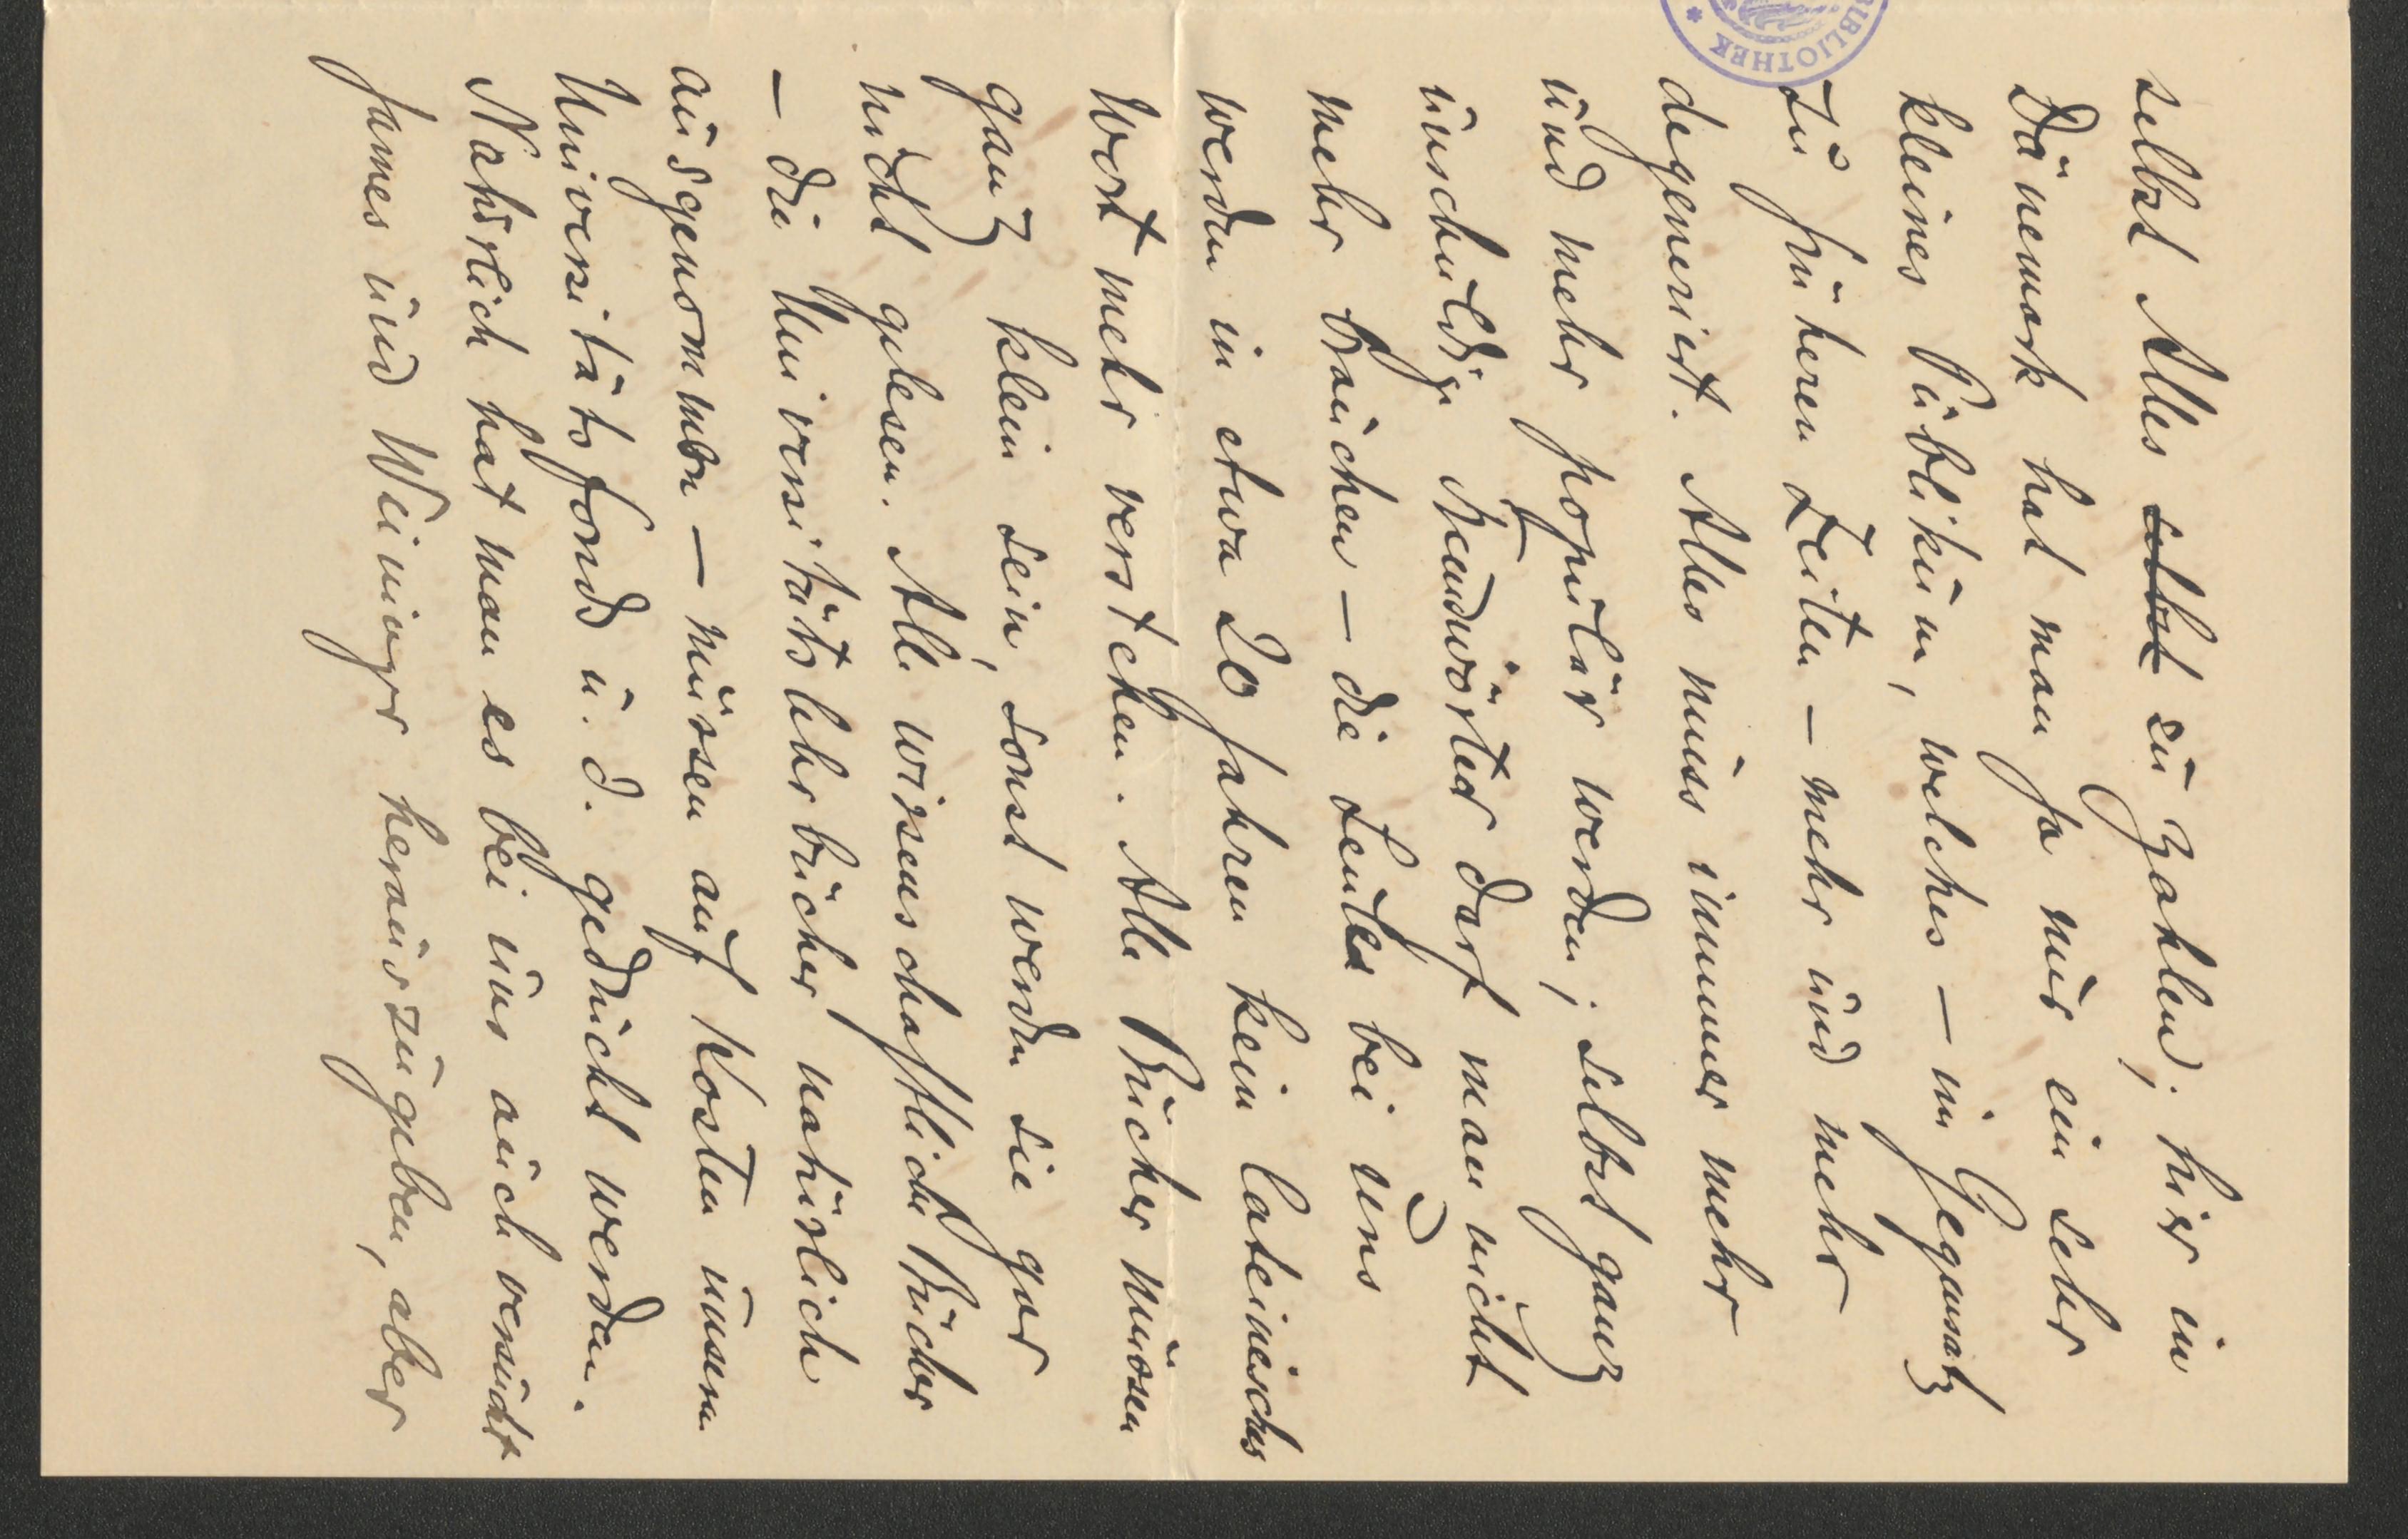 selbst Alles selbst zu Zahlen; hier in
Dänemark hat man ja nur ein sehr
kleines Publikum, welches – im Gegensatz
zu früheren Zeiten – mehr und mehr
degeneriert. Alles muss immer mehr
und mehr populär werden; selbst ganz
unschuldige Fremdwörter darf man nicht
mehr brauchen – die Leute bei uns
werden in etwa 20 Jahren kein lateinisches
Wort mehr verstehen. Alle Bücher müssen
ganz klein sein, sonst werden sie gar
nicht gelesen. Alle wissenschaftliche Bücher
– die Universitätslehrbücher natürlich
ausgenommen – müssen auf Kosten unseren
Universitätsfonds u. d. gedruckt werden.
Natürlich hat man es bei uns auch versucht
James und Weininger herauszugeben, aber
BIBLIOTHEK